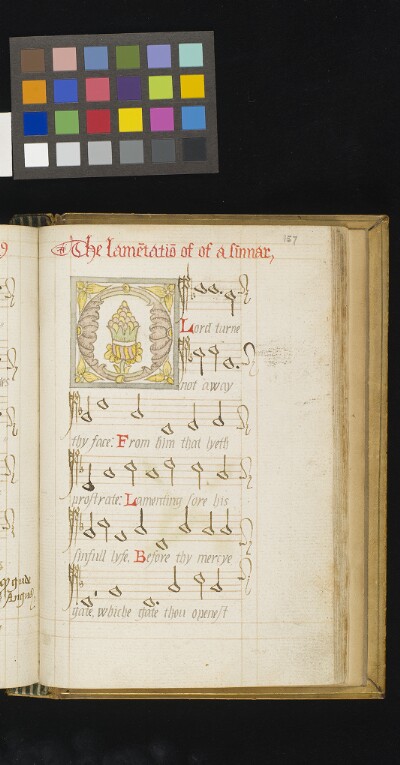 The lamētatiō of of a sinnar,
167
O
Lord turne
not away
thy face: From him that lyeth
prostrate: Lamenting sore his
sinfull lyfe. Before thy mercye
gate, whiche gate thou openest